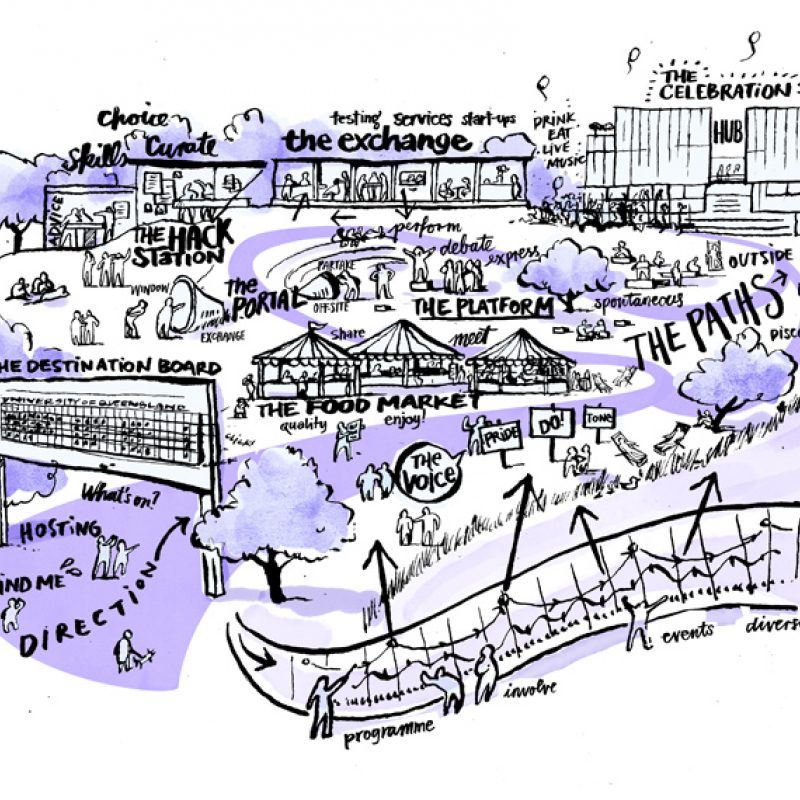 choice
skills
curate
testing services start-ups
the exchange
DRINK
EAT
LIVE
MUSIC
THE
CELEBRATION
HUB
ADVICE
THE HACK
STATION
WINDOW
the
PORTAL
EXCHANGE
perform
debate
express
PARTAKE
OFFSITE
THE PLATFORM
spontaneous
OUTSIDE
THE PATHS
share
meet
THE FOOD MARKET
quality
enjoy!
HE DESTINATION BOARD
UNIVERSITY OF QUEENSLAND
What's on?
HOSTING
IND ME
DIRECTION
THE
VOICE
PRIDE
DO!
TONE
programme
involve
events
divers